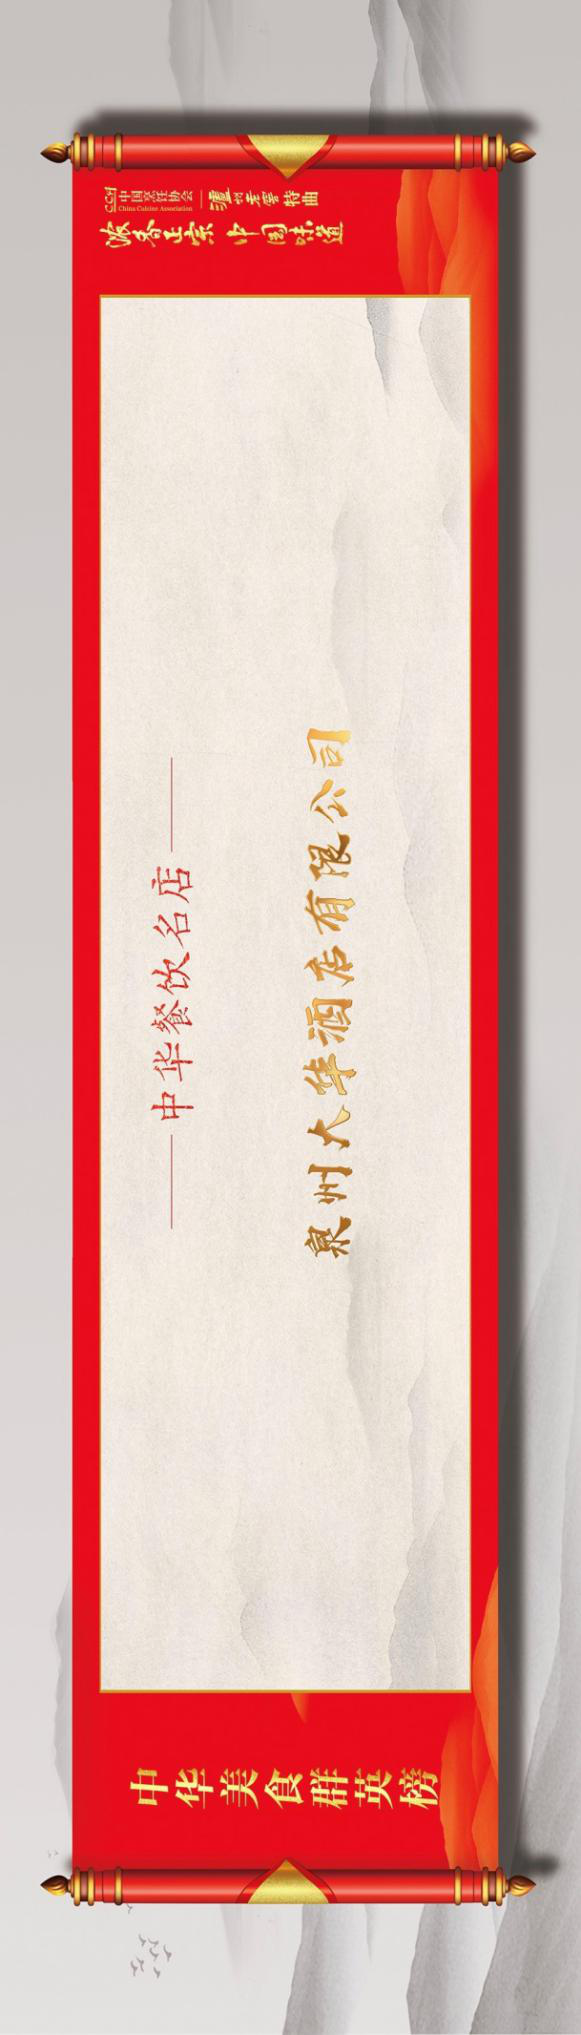 中国烹饪协会
China Cuisine Association
泸州老窖 特曲
浓香正宗 中国味道
中华餐饮名店
泉州大华酒店有限公司
中华美食群英榜